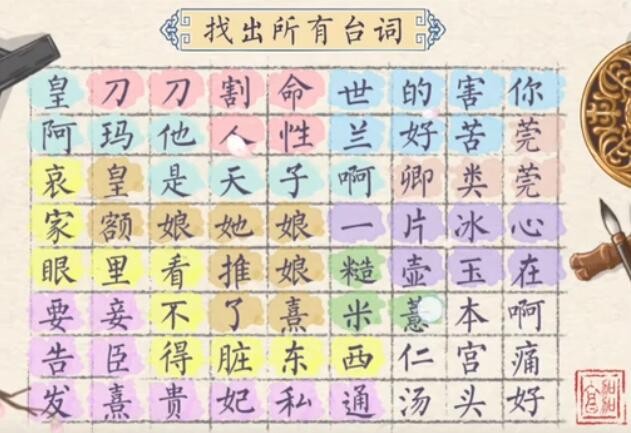 找出所有台词
皇刀刀割命世的害你
阿玛他人性兰好苦莞
哀皇是天子啊卿类莞
家额娘她娘一片冰心
眼里看推娘糙壶玉在
要妾不了熹米薏本啊
告臣得脏东西仁宫痛
发熹贵妃私通汤头好